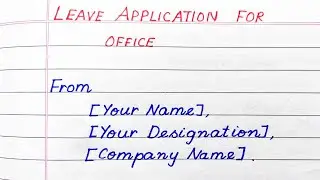 Leave Application for
office
From
[Your Name],
[Your Designation],
[Company Name].